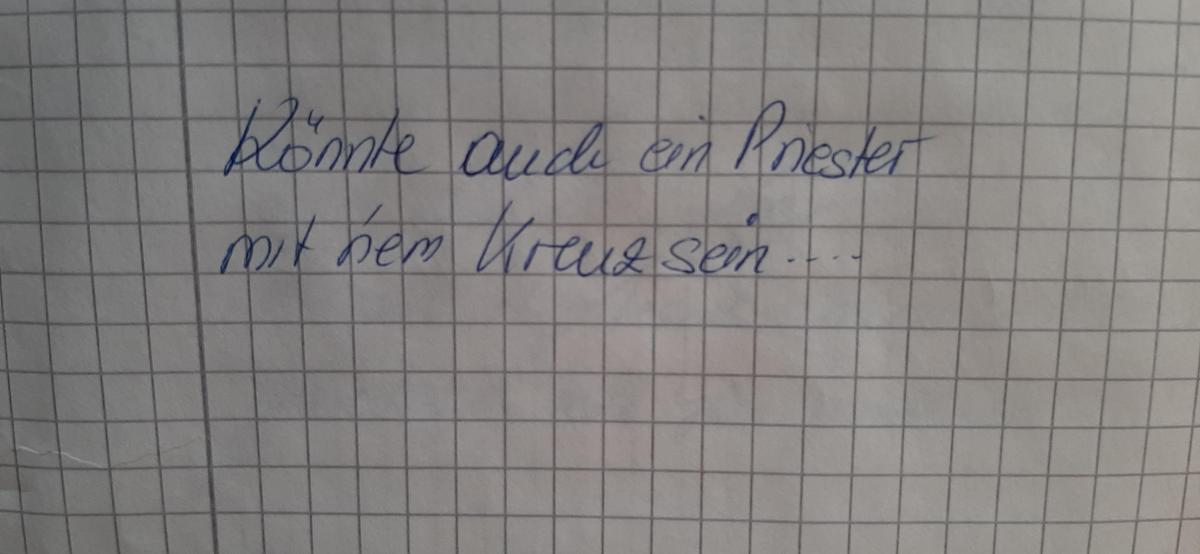 Könnte auch ein Priester
mit nem Kreuz sein....